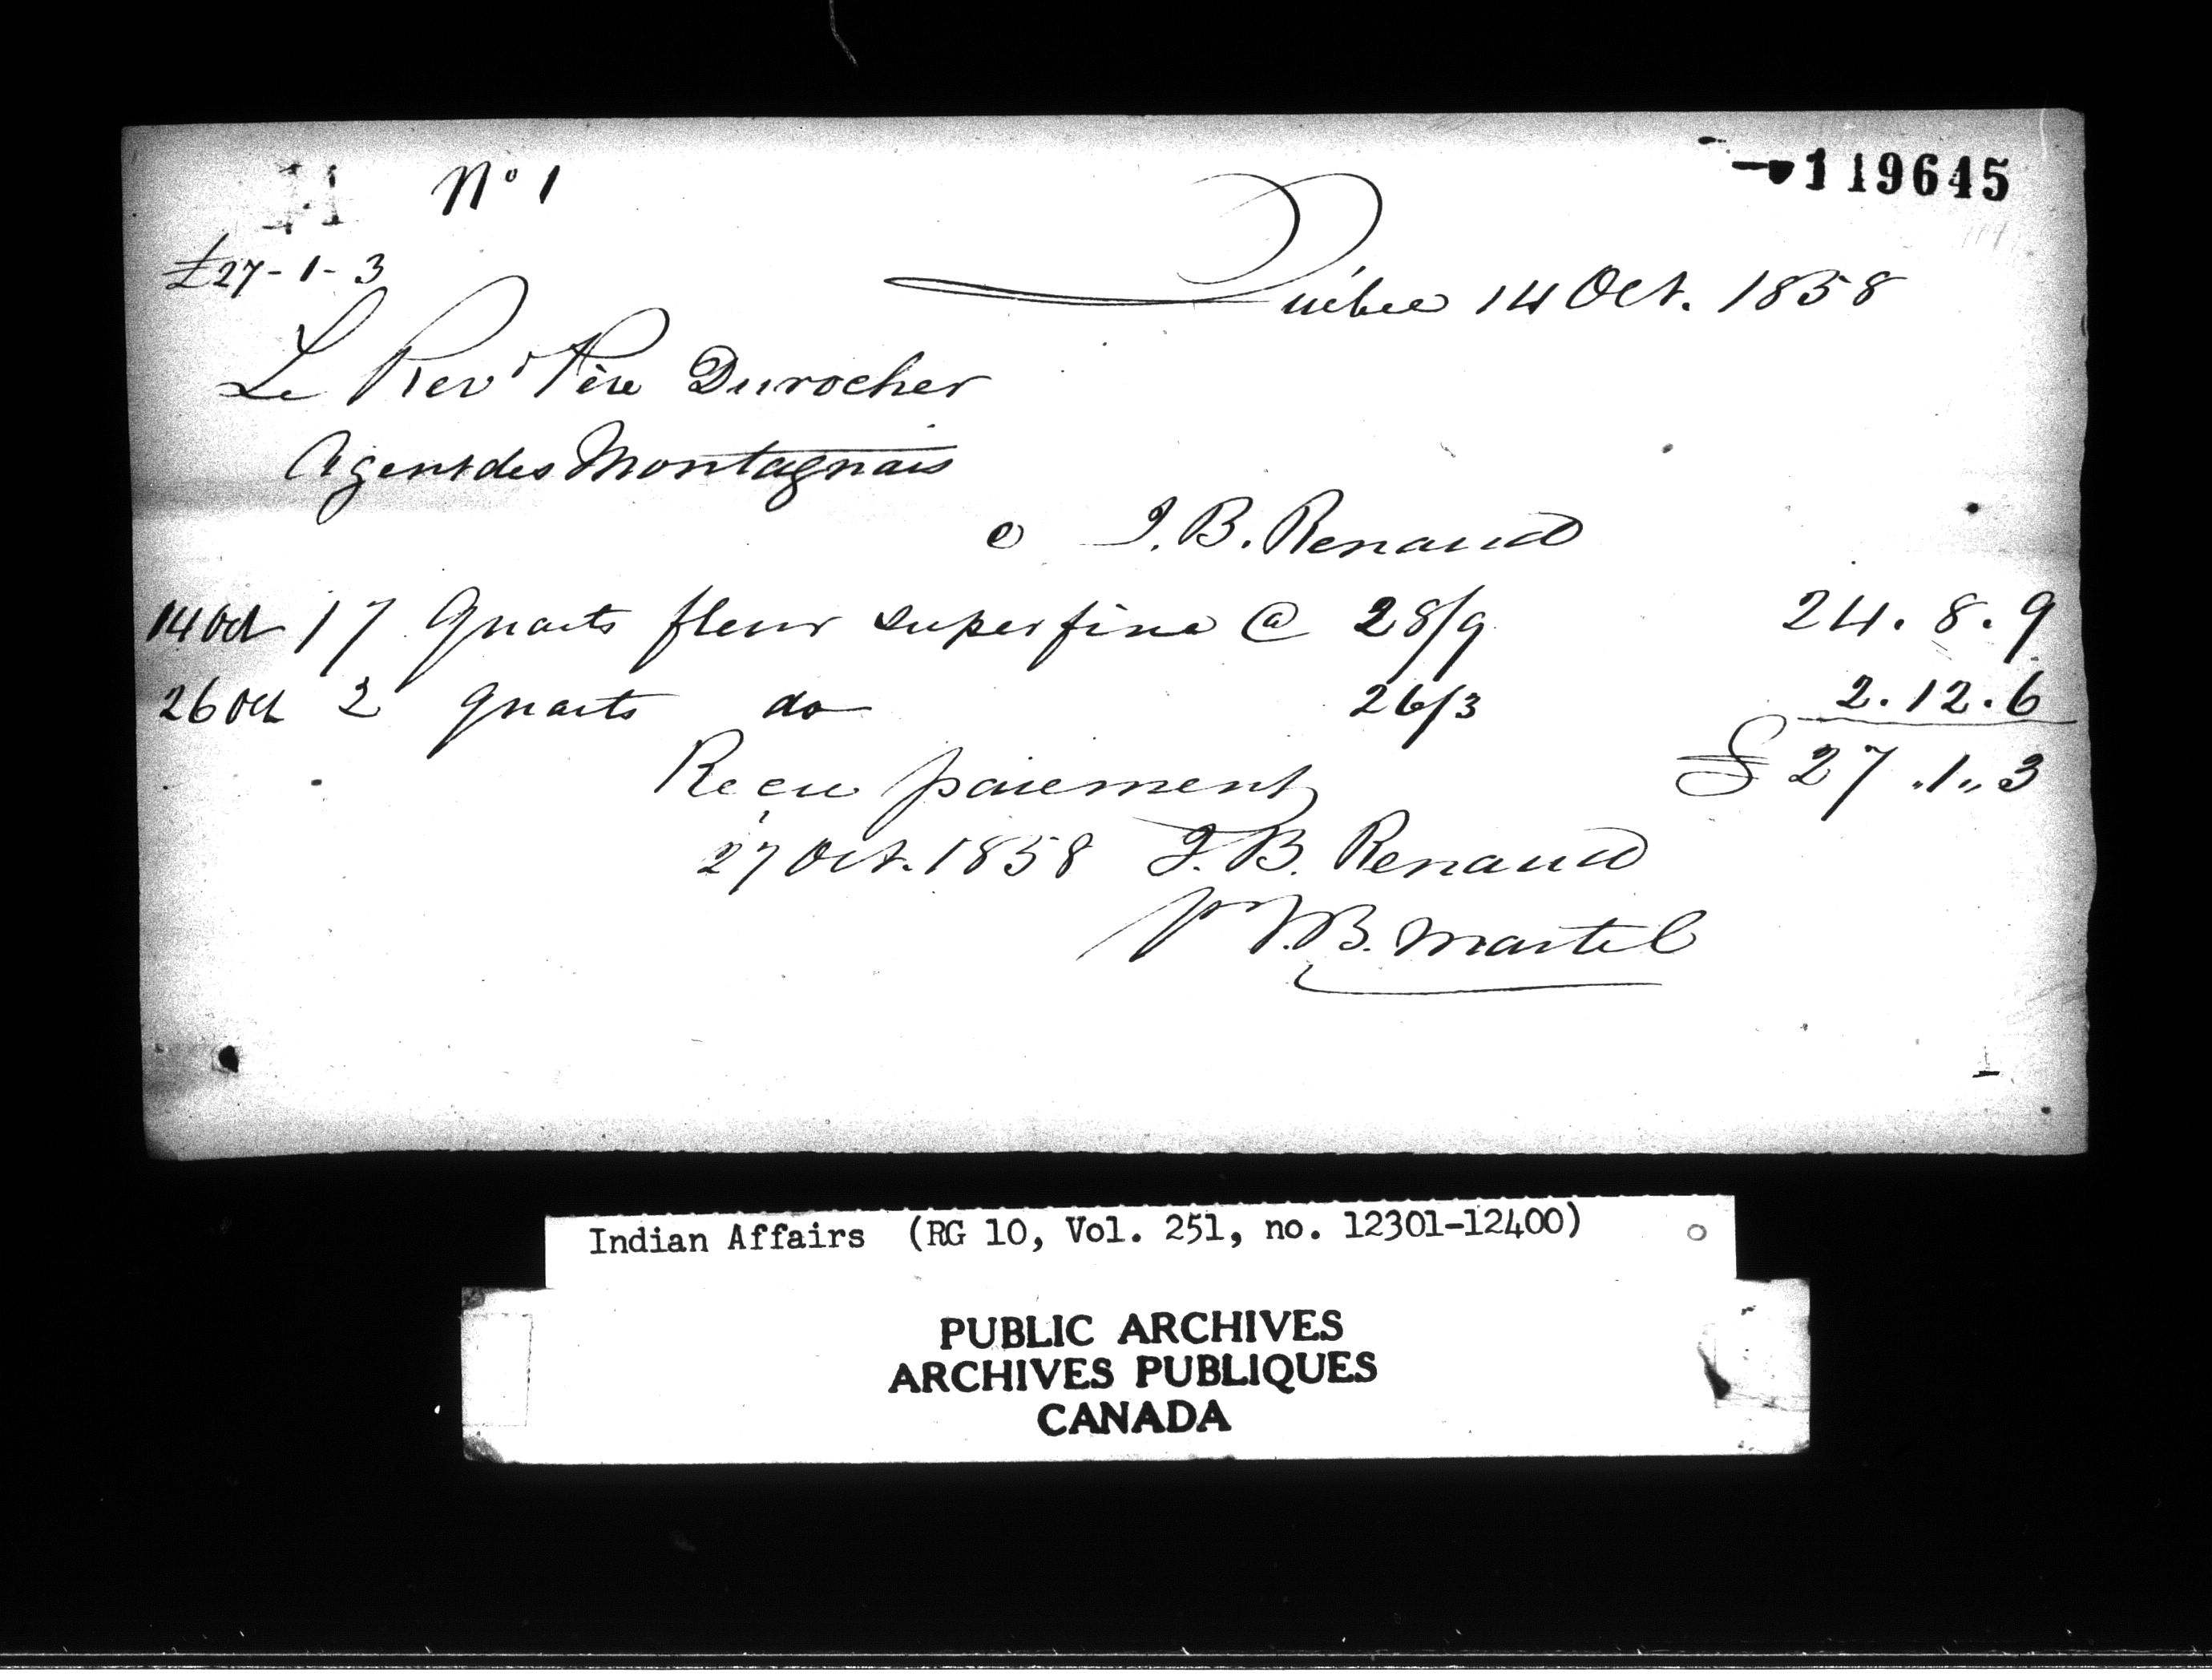 N° 1
119645
£27-1-3
Québec 14 Oct. 1858
Le Revd Père Durocher
Agent des Montagnais
a J.B. Renaud
14 Oct 17 Quarts fleur superfine @ 28/9 24.8.9
26 Oct 2 quarts do 26/3 2.12.6
Recu paiement £ 27 "1" 3
27 Oct. 1858 J.B. Renaud
pr J.B. Martel
Indian Affairs (RG 10, Vol. 251, no. 12301-12400)
PUBLIC ARCHIVES
ARCHIVES PUBLIQUES
CANADA